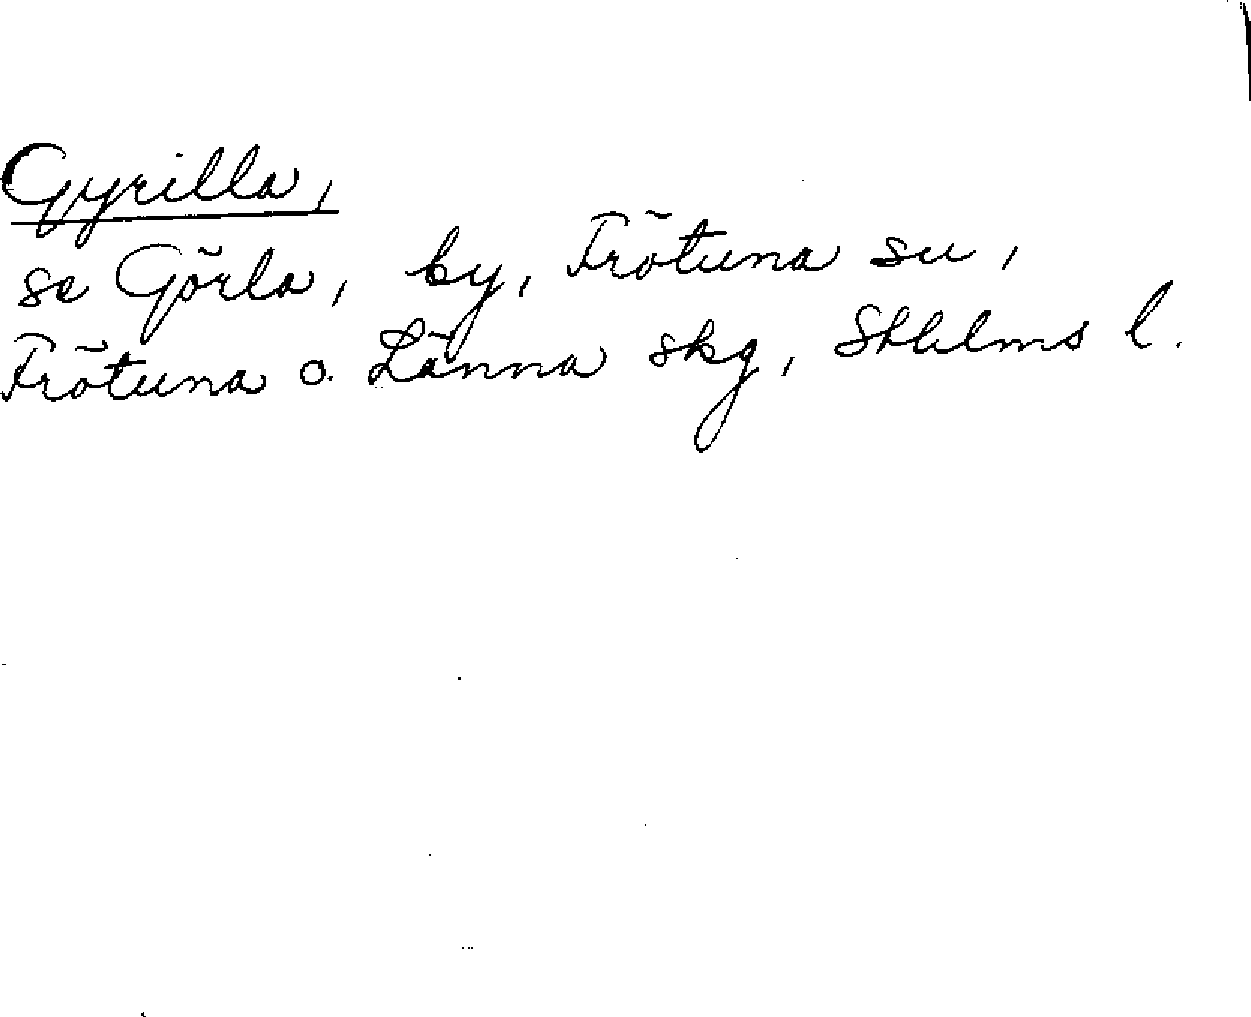 Gyrilla,
se Görla, by, Frötuna su,
Frötuna o. Länna skg, Sthlms l.